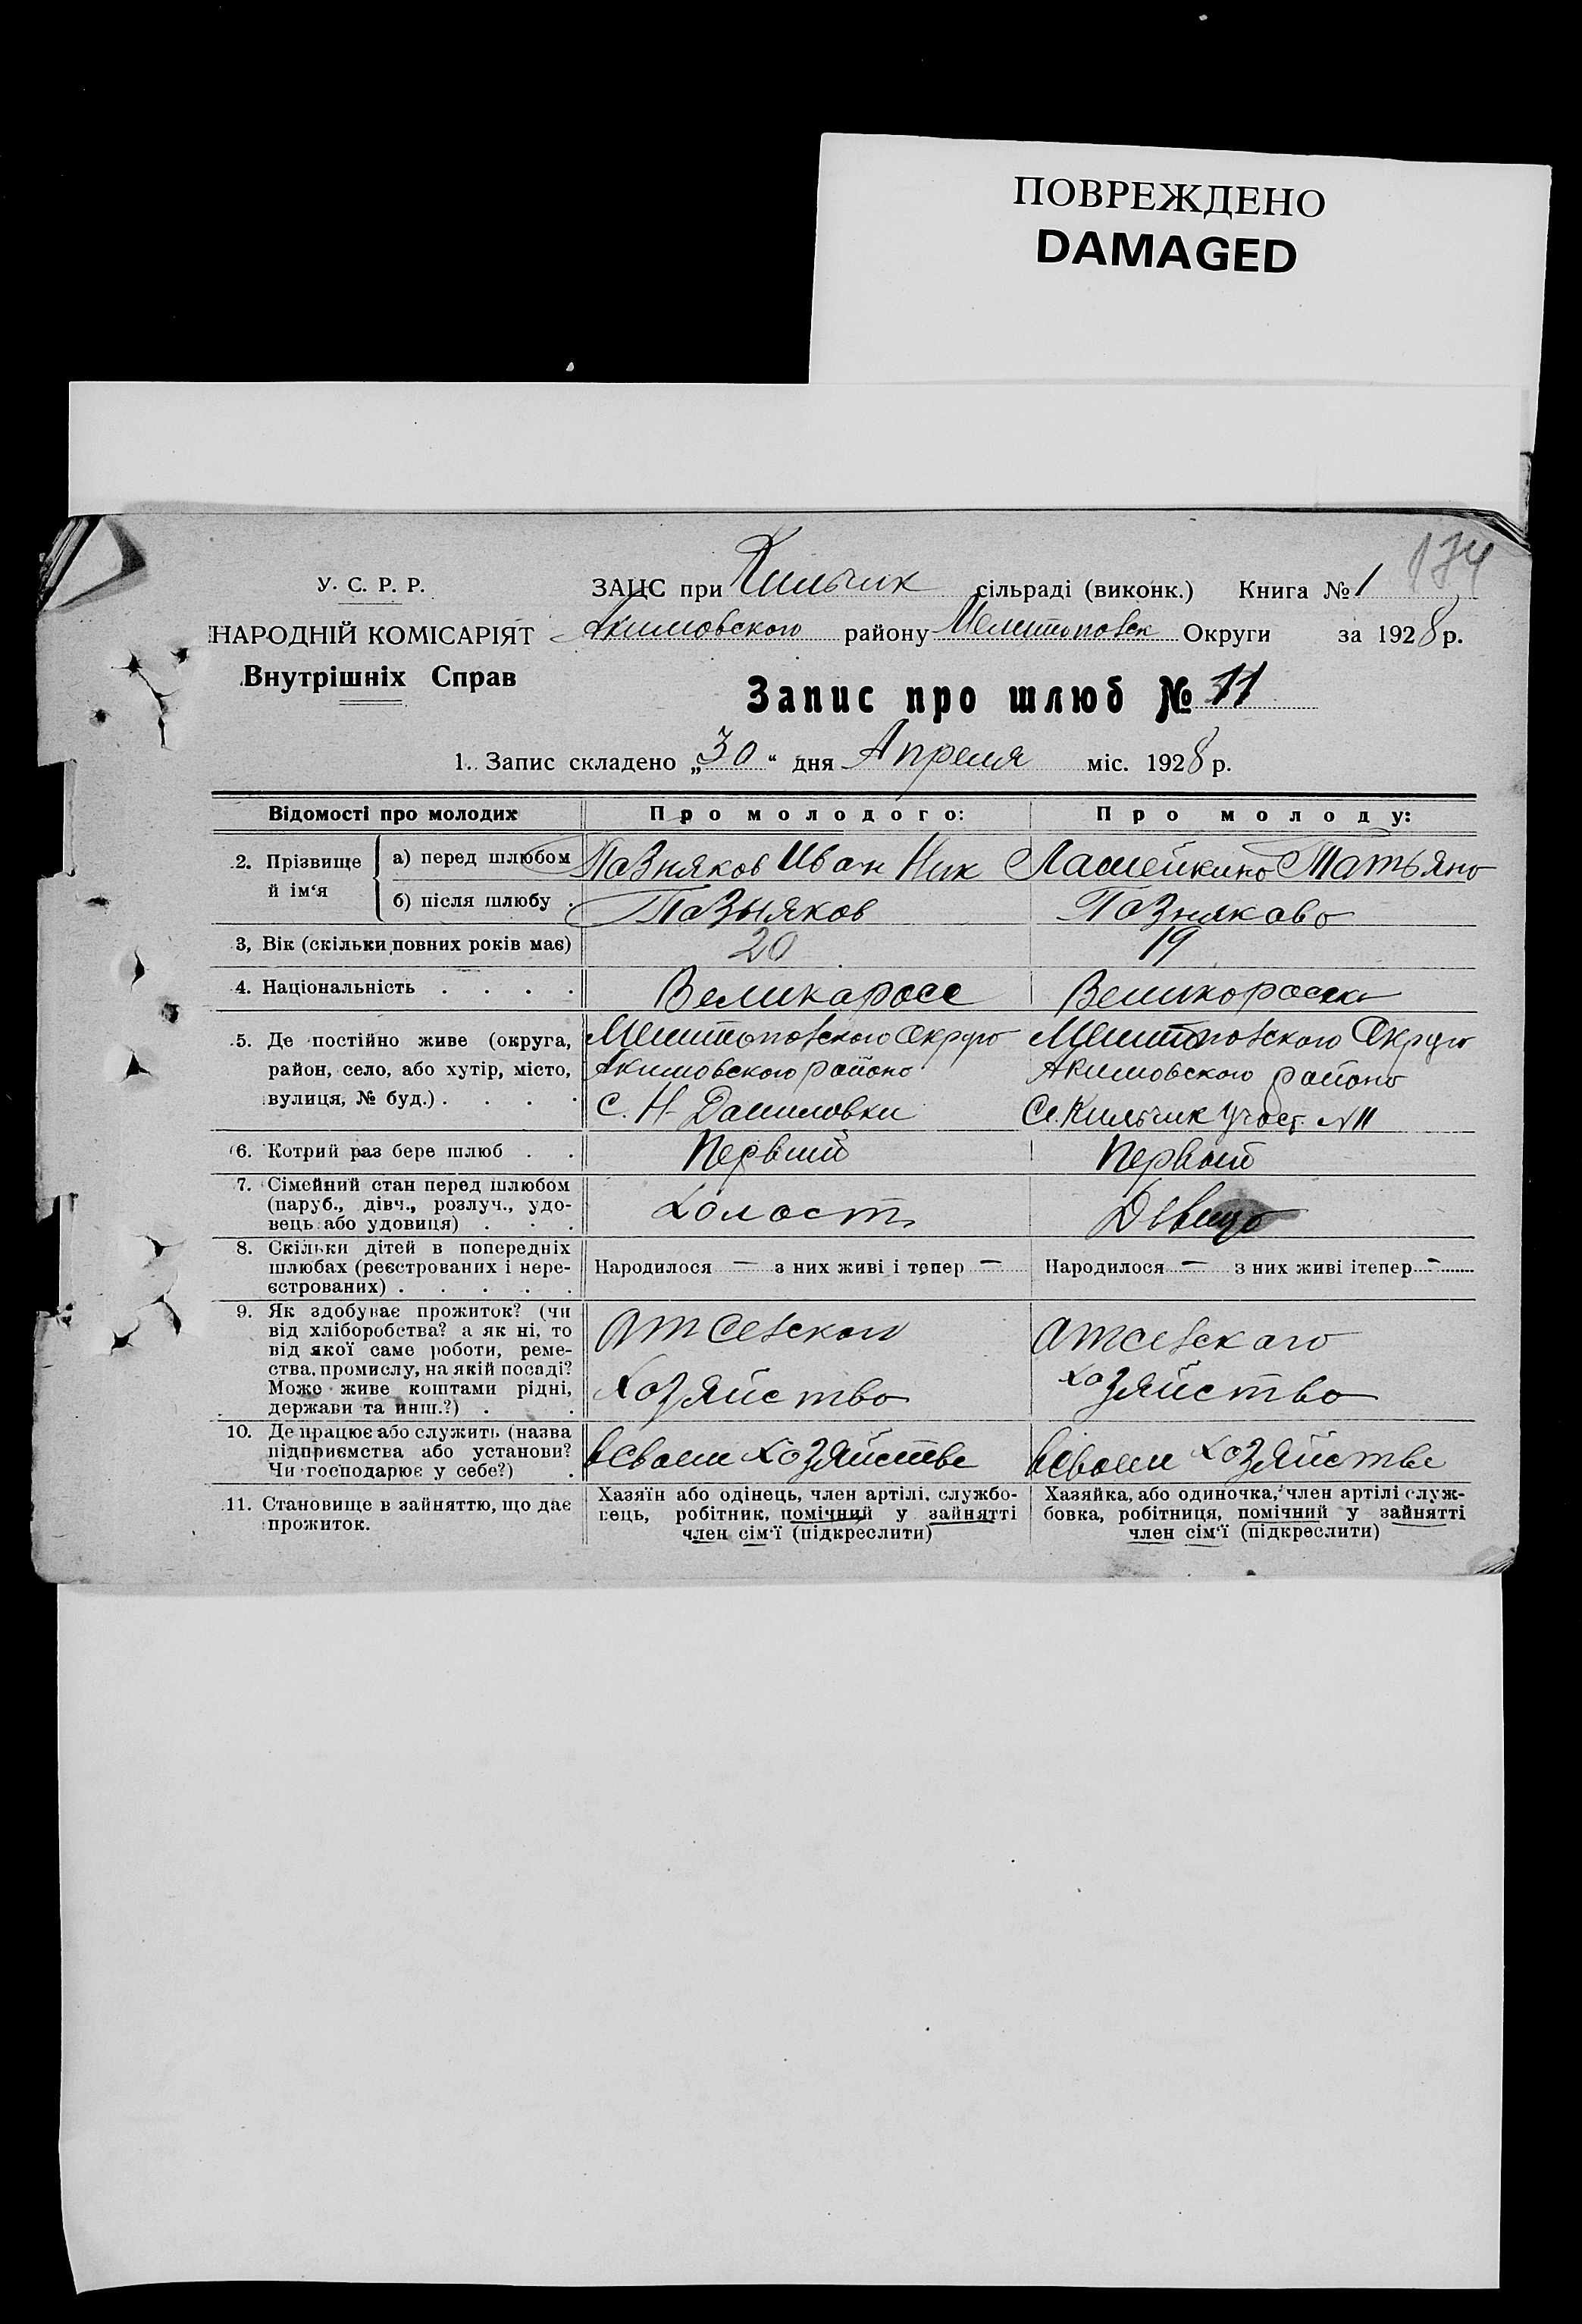 ПОВРЕЖДЕНО
DAMAGED
174
У. С. Р. Р.
НАРОДНІЙ КОМІСАРІЯТ
Внутрішніх Справ
ЗАЦС при Кильчик сільраді (виконк.) Книга № 1
Акимовского району Мелитоповск Округи за 1928 р.
Запис про шлюб № 11
1. Запис складено „30“ дня Апреля міс. 1928 р.
Відомості про молодих Про молодого: Про молоду:
2. Прізвище й ім‘я
а) перед шлюбом Пазняков Иван Ник Лашейкина Татьяна
б) після шлюбу . Пазняков Пазнякова
3, Вік (скільки повних років має) 20 19
4. Національність . . . . Великаросс Великороска
5. Де постійно живе (округа,
район, село, або хутір, місто,
вулиця, № буд.) . . . .
Мелитоповского Округа
Акимовского района
С. Н-Даниловки
Мелитоповского Округа
Акимовского района
Се. Кильчик Участ. N 11
6. Котрий раз бере шлюб . . Первий Первый
7. Сімейний стан перед шлюбом
(паруб., дівч., розлуч., удо-
вець або удовиця) . . .
Холост
Девица
8. Скільки дітей в попередніх
шлюбах (реєстрованих і нере-
єстрованих) . . . . .
Народилося — з них живі і тепер —
Народилося — з них живі ітепер —
9. Як здобуває прожиток? (чи
від хліборобства? а як ні, то
від якої саме роботи, реме-
ства, промислу, на якій посаді?
Може живе коштами рідні,
держави та инш.?) . .
От Севского
Хозяйства
От севскаго
хозяйства
10. Де працює або служить (назва
підприємства або установи?
Чи господарює у себе?) .
всвоем Хозяйстве
всвоем Хозяйстве
11. Становище в зайняттю, що дає
прожиток.
Хазяїн або одінець, член артілі, службо-
вець, робітник, помічний у зайнятті
член сім‘ї (підкреслити)
Хазяйка, або одиночка, член артілі служ-
бовка, робітниця, помічний у зайнятті
член сім‘ї (підкреслити)